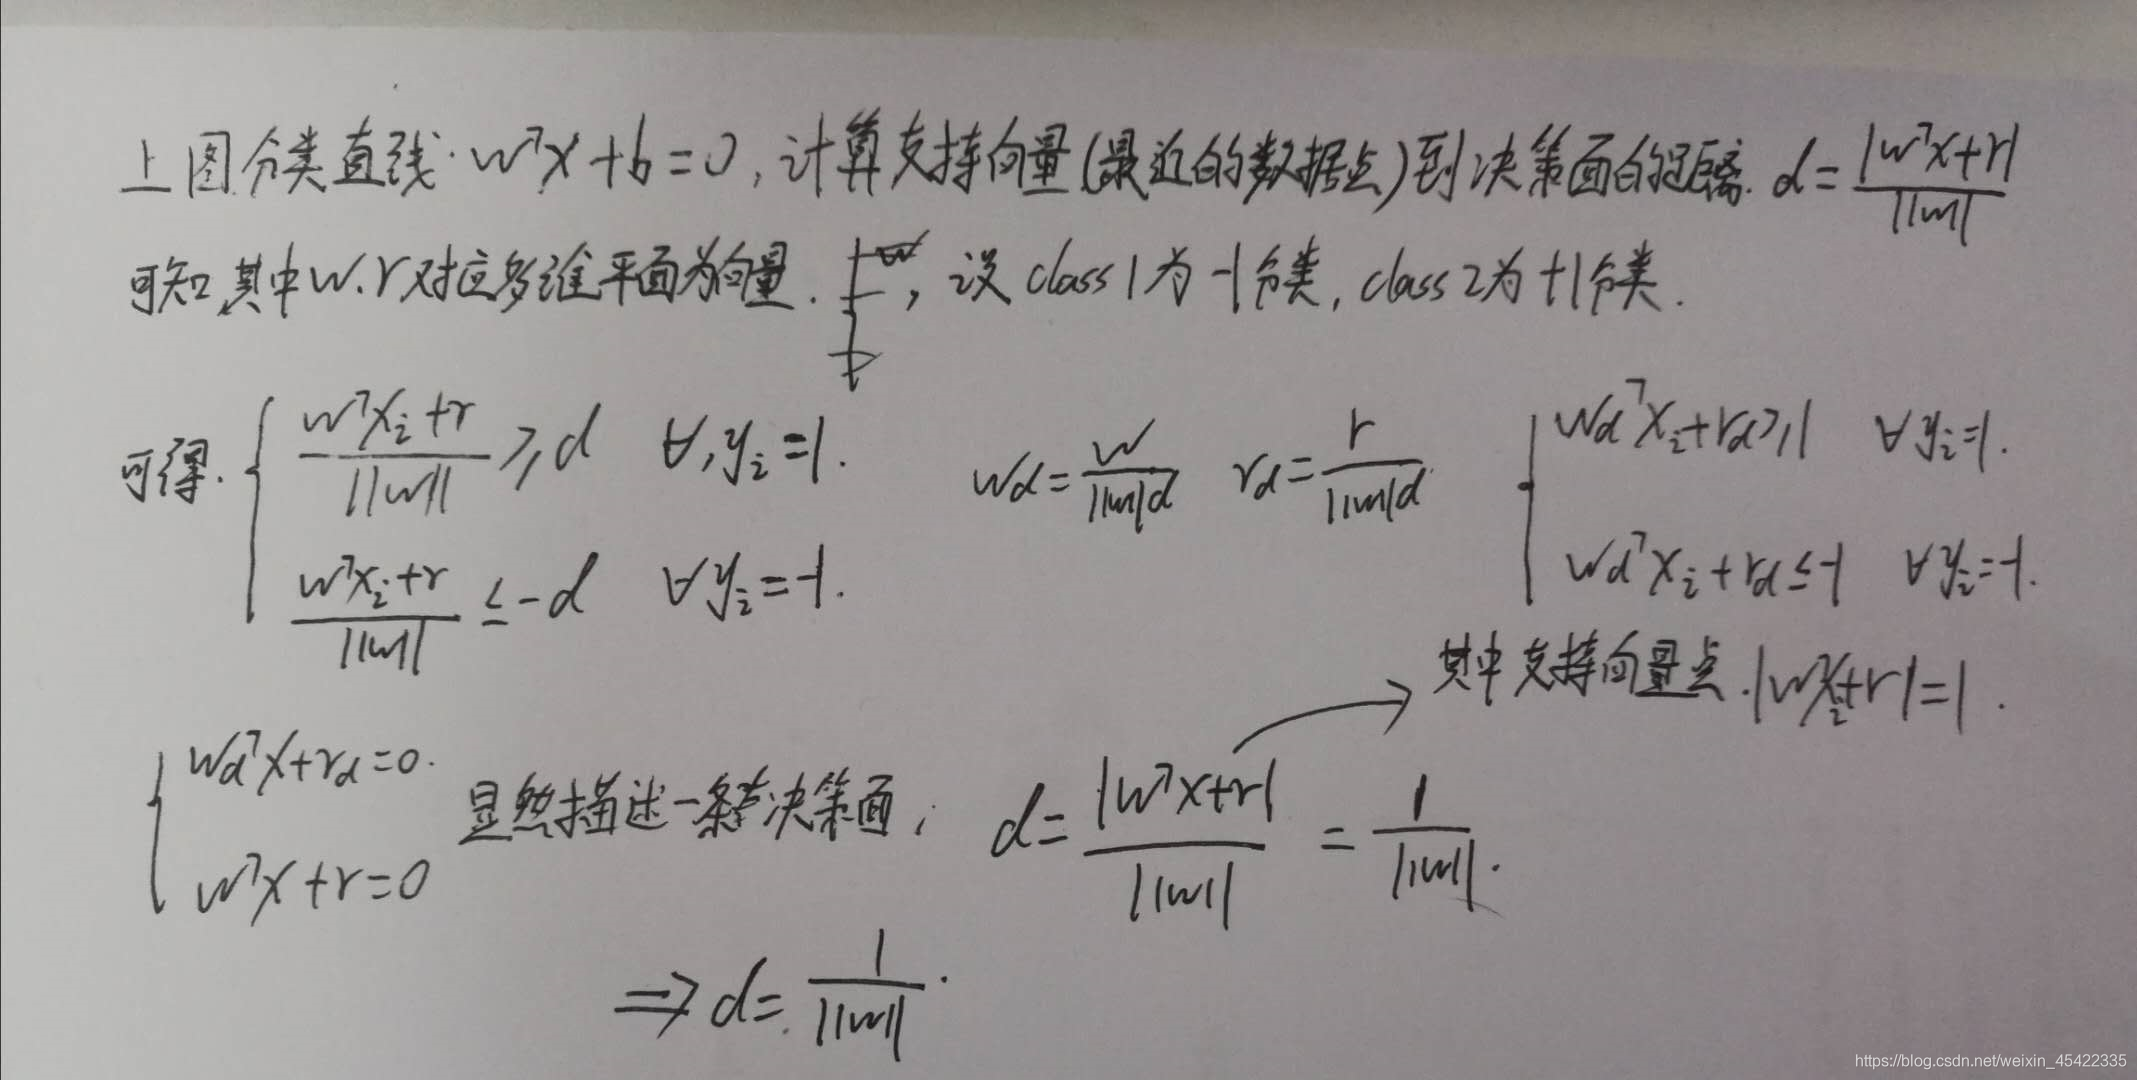 上图分类直线: w^T x + b = 0, 计算支持向量(最近的数据点)到决策面的距离. d = |w^T x + r| / ||w||
可知其中 w、r 对应多维平面为向量. , 设 class 1 为 -1 分类, class 2 为 +1 分类.
可得. { (w^T x_i + r) / ||w|| ≥ d ∀, y_i = 1.
(w^T x_i + r) / ||w|| ≤ -d ∀ y_i = -1.
w_d = w / (||w|| d) r_d = r / (||w|| d)
{ w_d^T x_i + r_d ≥ 1 ∀ y_i = 1.
w_d^T x_i + r_d ≤ -1 ∀ y_i = -1.
其中支持向量点. |w^T x_i + r| = 1.
{ w_d^T x + r_d = 0.
w^T x + r = 0
显然描述一条决策面, d = |w^T x + r| / ||w|| = 1 / ||w||.
⇒ d = 1 / ||w||.
https://blog.csdn.net/weixin_45422335